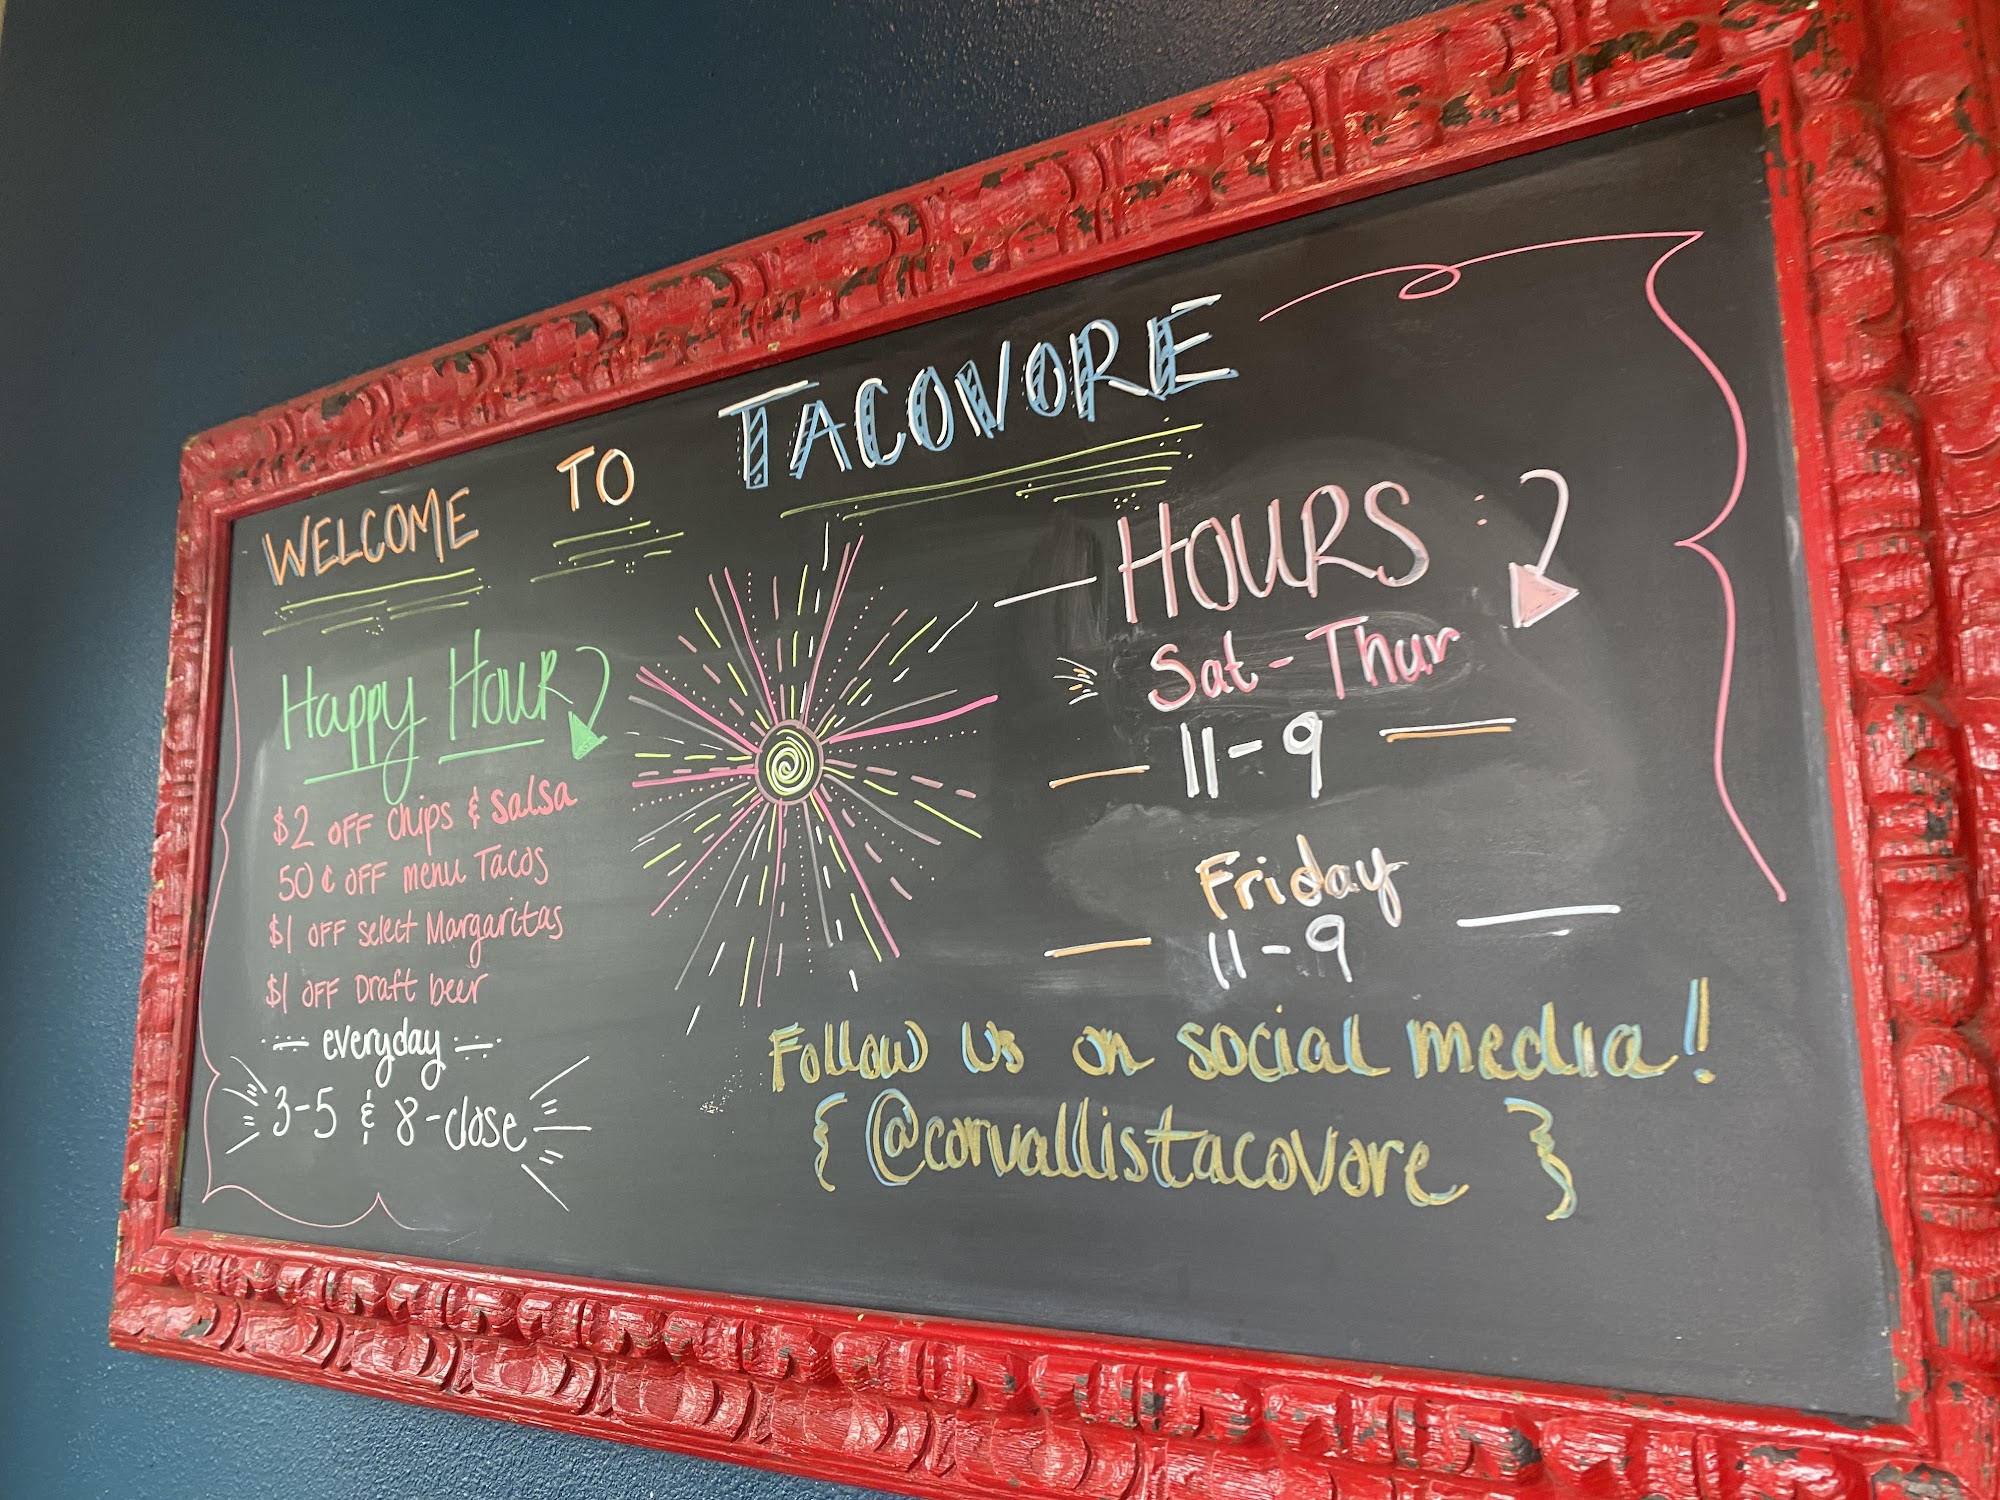 WELCOME TO TACOVORE
Happy Hour
$2 OFF chips & salsa
50¢ OFF menu Tacos
$1 OFF select Margaritas
$1 OFF Draft beer
everyday
3-5 & 8-close
HOURS:
Sat-Thur
11-9
Friday
11-9
Follow us on social media!
{@corvallistacovore}